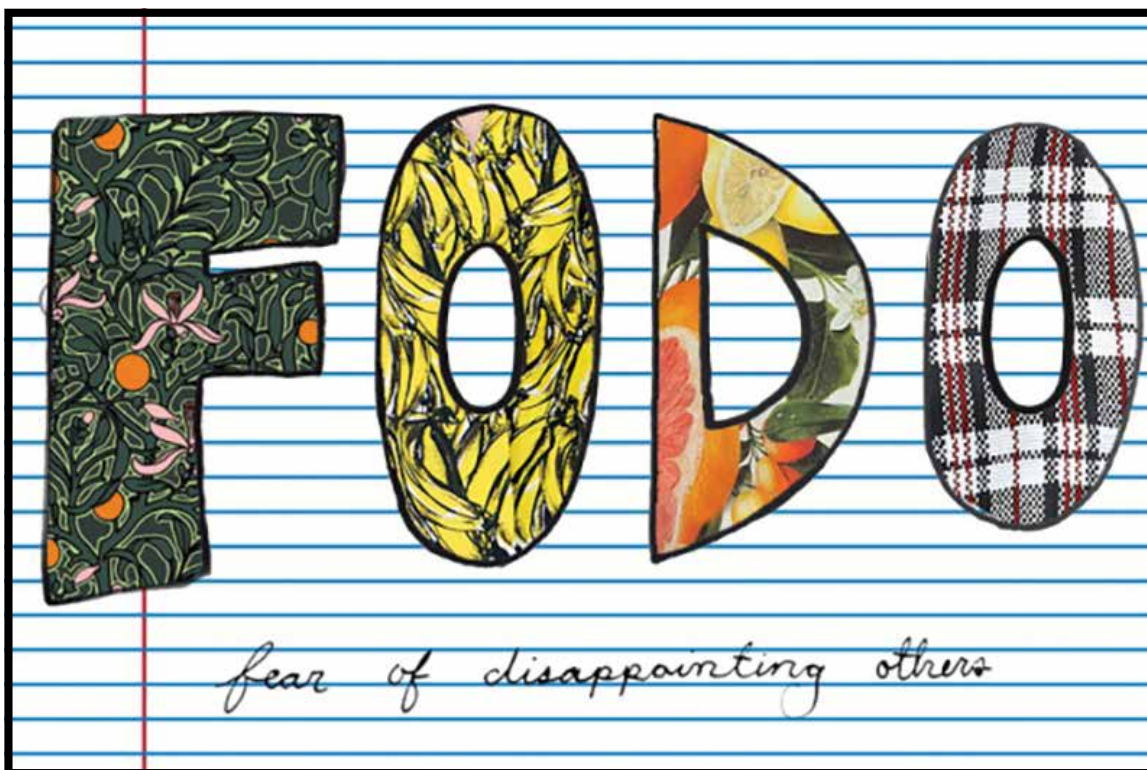 FODO
fear of disappointing others